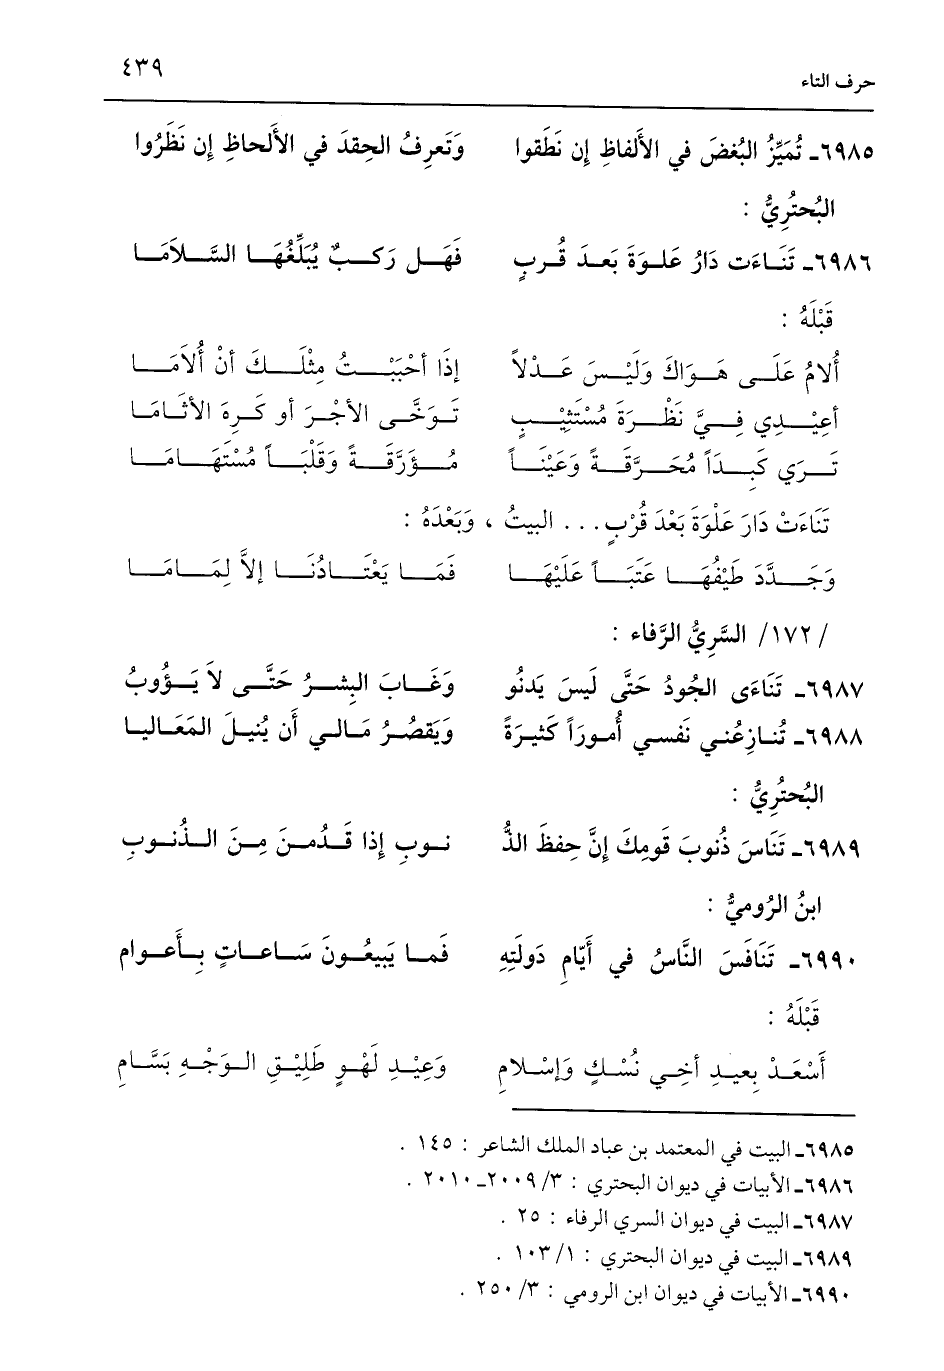 حرف التاء ٤٣٩
٦٩٨٥ـ تُمَيِّزُ البُغضَ في الأَلفاظِ إن نَطَقوا وَتَعرِفُ الحِقدَ في الأَلحاظِ إن نَظَرُوا
البُحتُرِيُّ :
٦٩٨٦ـ تَنَاءَت دَارُ عَلوَةَ بَعدَ قُربٍ فَهَل رَكبٌ يُبَلِّغُهَا السَّلاَمَا
قَبْلَهُ :
أُلامُ عَلَى هَوَاكَ وَلَيْسَ عَدْلاً إِذَا أحْبَبْتُ مِثْلَكَ أنْ أُلاَمَا
أعِيْدِي فِيَّ نَظْرَةَ مُسْتَثِيْبٍ تَوَخَّى الأجْرَ أو كَرِهَ الأثَامَا
تَرَي كَبِدَاً مُحَرَّقَةً وَعَيْنَاً مُؤَرَّقَةً وَقَلْبَاً مُسْتَهَامَا
تَنَاءَتْ دَارَ عَلْوَةَ بَعْدَ قُرْبٍ . . . البيتُ ، وَبَعْدَهُ :
وَجَدَّدَ طَيْفُهَا عَتَبَاً عَلَيْهَا فَمَا يَعْتَادُنَا إلاَّ لِمَامَا
/ ١٧٢/ السَّرِيُّ الرَّفاء :
٦٩٨٧ـ تَنَاءَى الجُودُ حَتَّى لَيسَ يَدنُو وَغَابَ البِشرُ حَتَّى لاَ يَؤُوبُ
٦٩٨٨ـ تُنازِعُني نَفسي أُموراً كَثيرَةً وَيَقصُرُ مَالي أن يُنيلَ المَعَاليا
البُحتُرِيُّ :
٦٩٨٩ـ تَنَاسَ ذُنوبَ قَومِكَ إنَّ حِفظَ الذُّ نوبِ إذا قَدُمنَ مِنَ الذُنوبِ
ابنُ الرُوميُّ :
٦٩٩٠ـ تَنَافَسَ النَّاسُ في أَيّامِ دَولَتِهِ فَما يَبيعُونَ سَاعاتٍ بِأَعوامِ
قَبْلَهُ :
أَسْعَدْ بِعيدِ أخِي نُسْكٍ وَإسْلامِ وَعِيْدِ لَهْوٍ طَلِيْقِ الوَجْهِ بَسَّامِ
٦٩٨٥ـ البيت في المعتمد بن عباد الملك الشاعر : ١٤٥ .
٦٩٨٦ـ الأبيات في ديوان البحتري : ٣/ ٢٠٠٩ـ٢٠١٠ .
٦٩٨٧ـ البيت في ديوان السري الرفاء : ٢٥ .
٦٩٨٩ـ البيت في ديوان البحتري : ١/ ١٠٣ .
٦٩٩٠ـ الأبيات في ديوان ابن الرومي : ٣/ ٢٥٠ .